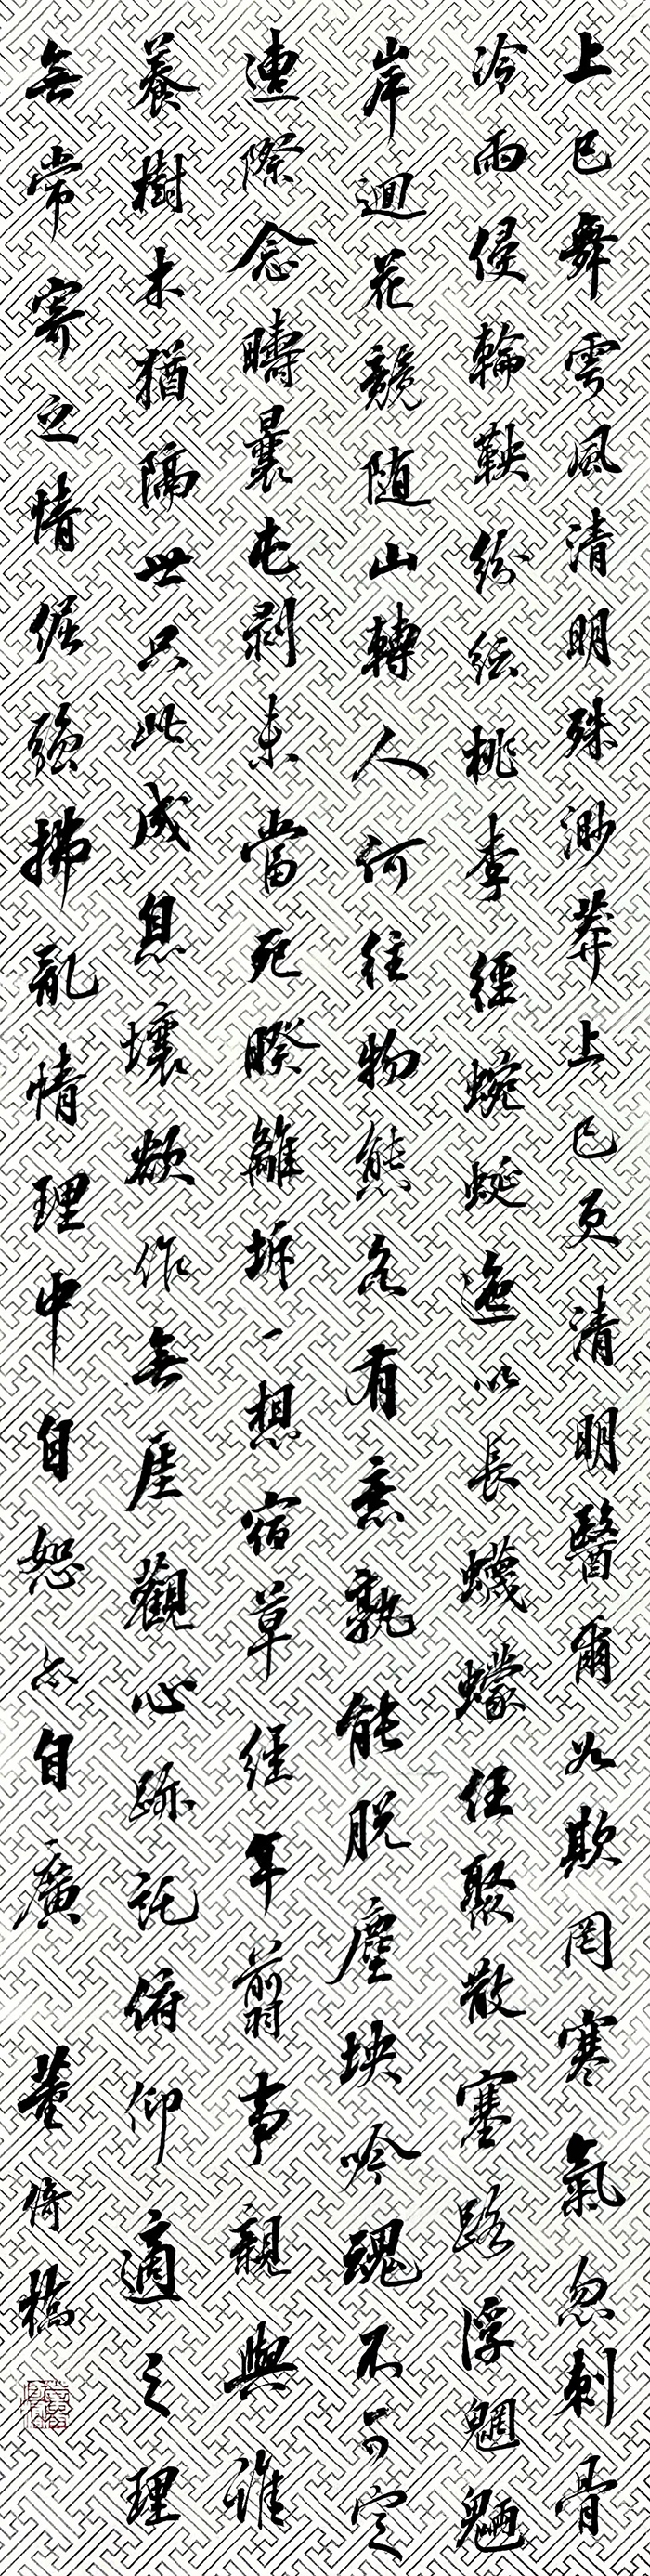 上巳舞雲風清明殊渺莽上巳更清明醫爾如欺罔寒氣忽刺骨
冷雨侵輪鞅紛紜桃李徑蜿蜒迤以長蠛蠓任聚散塞路浮魍魎
岸迴花競随山轉人何往物態各有意孰能脱塵坱吟魂不可定
連際念疇曩屯剥未當死睽離坼一想宿草經年翦事親與誰
養樹木猶隔世只此成息壤欲作無厓觀心跡託俯仰適之理
無常寄之情倔強拂亂情理中自恕亦自廣 董倚橋